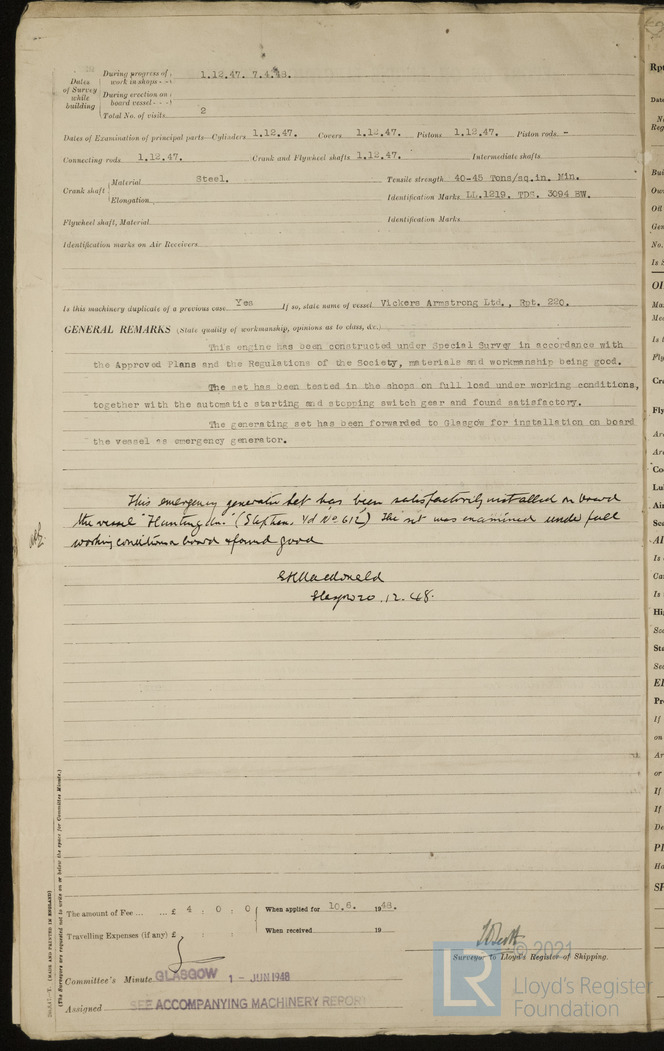 Dates of Survey while building
During progress of work in shops - - 1.12.47. 7.4.48.
During erection on board vessel - - -
Total No. of visits 2
Dates of Examination of principal parts—Cylinders 1.12.47. Covers 1.12.47. Pistons 1.12.47. Piston rods -
Connecting rods 1.12.47. Crank and Flywheel shafts 1.12.47. Intermediate shafts
Crank shaft Material Steel. Tensile strength 40-45 Tons/sq.in. Min.
Elongation Identification Marks LL.1219. TDS. 3094 BW.
Flywheel shaft, Material Identification Marks
Identification marks on Air Receivers
Is this machinery duplicate of a previous case Yes If so, state name of vessel Vickers Armstrong Ltd., Rpt. 220.
GENERAL REMARKS (State quality of workmanship, opinions as to class, &c.)
This engine has been constructed under Special Survey in accordance with
the Approved Plans and the Regulations of the Society, materials and workmanship being good.
The set has been tested in the shops on full load under working conditions,
together with the automatic starting and stopping switch gear and found satisfactory.
The generating set has been forwarded to Glasgow for installation on board
the vessel as emergency generator.
This emergency generator set has been satisfactorily installed on board
the vessel "Huntingdon. (Stephens Yd No 612) The set was examined under full
working conditions on board & found good
Macdonald
Glasgow 20.12.48.
The amount of Fee ... ... £ 4 : 0 : 0 When applied for 10.6. 1948.
Travelling Expenses (if any) £ : : When received 19
Surveyor to Lloyd's Register of Shipping.
Committee's Minute GLASGOW 1 - JUN 1948
Assigned SEE ACCOMPANYING MACHINERY REPORT
(MADE AND PRINTED IN ENGLAND)
(The Surveyors are requested not to write on or below the space for Committee Minute.)
© 2021
LR
Lloyd's Register
Foundation
Rpt